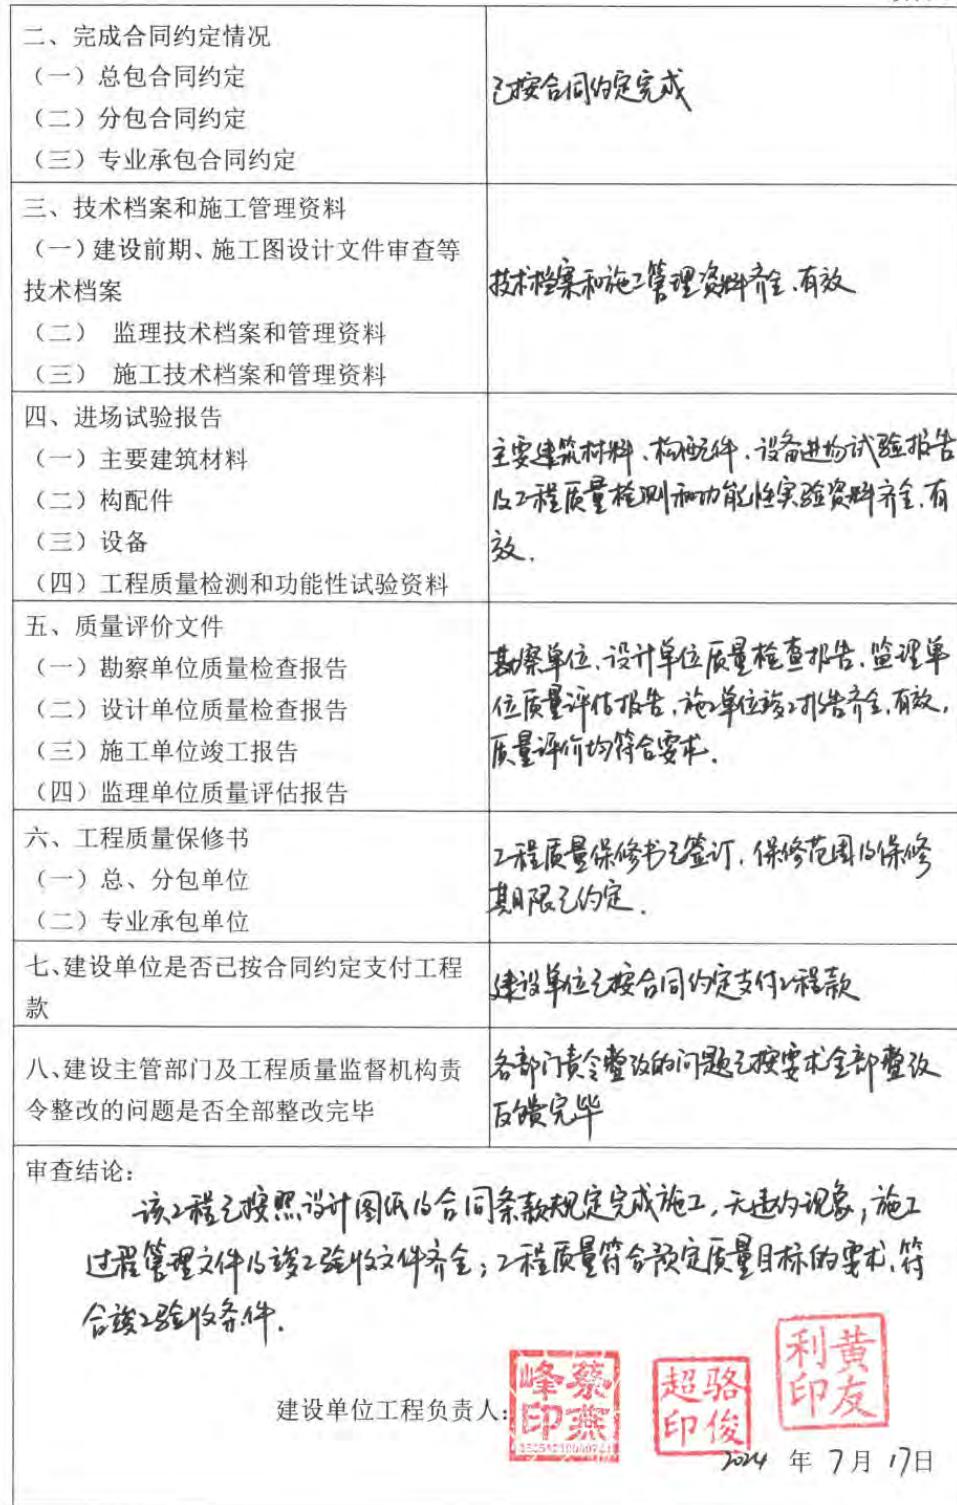 二、完成合同约定情况
（一）总包合同约定
（二）分包合同约定
（三）专业承包合同约定
已按合同约定完成
三、技术档案和施工管理资料
（一）建设前期、施工图设计文件审查等
技术档案
（二） 监理技术档案和管理资料
（三） 施工技术档案和管理资料
技术档案和施工管理资料齐全、有效
四、进场试验报告
（一）主要建筑材料
（二）构配件
（三）设备
（四）工程质量检测和功能性试验资料
主要建筑材料、构配件、设备进场试验报告
及工程质量检测和功能性实验资料齐全、有
效.
五、质量评价文件
（一）勘察单位质量检查报告
（二）设计单位质量检查报告
（三）施工单位竣工报告
（四）监理单位质量评估报告
勘察单位、设计单位质量检查报告、监理单
位质量评估报告、施工单位竣工报告齐全、有效,
质量评价均符合要求.
六、工程质量保修书
（一）总、分包单位
（二）专业承包单位
工程质量保修书已签订、保修范围及保修
期限已约定.
七、建设单位是否已按合同约定支付工程
款
建设单位已按合同约定支付工程款
八、建设主管部门及工程质量监督机构责
令整改的问题是否全部整改完毕
各部门责令整改的问题已按要求全部整改
反馈完毕
审查结论：
该工程已按照设计图纸及合同条款规定完成施工,无违约现象,施工
过程管理文件及竣工验收文件齐全;工程质量符合预定质量目标的要求,符
合竣工验收条件.
建设单位工程负责人：
蔡燕峰印
骆俊超印
黄友利印
2024 年 7 月 17 日